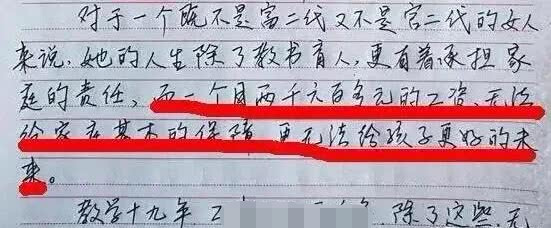 对于一个既不是富二代又不是官二代的女人
来说，她的人生除了教书育人，更有着承担家
庭的责任，而一个月两千六百多元的工资，无法
给家庭基本的保障，更无法给孩子更好的未
来。
教学十九年 工 除了这些，无